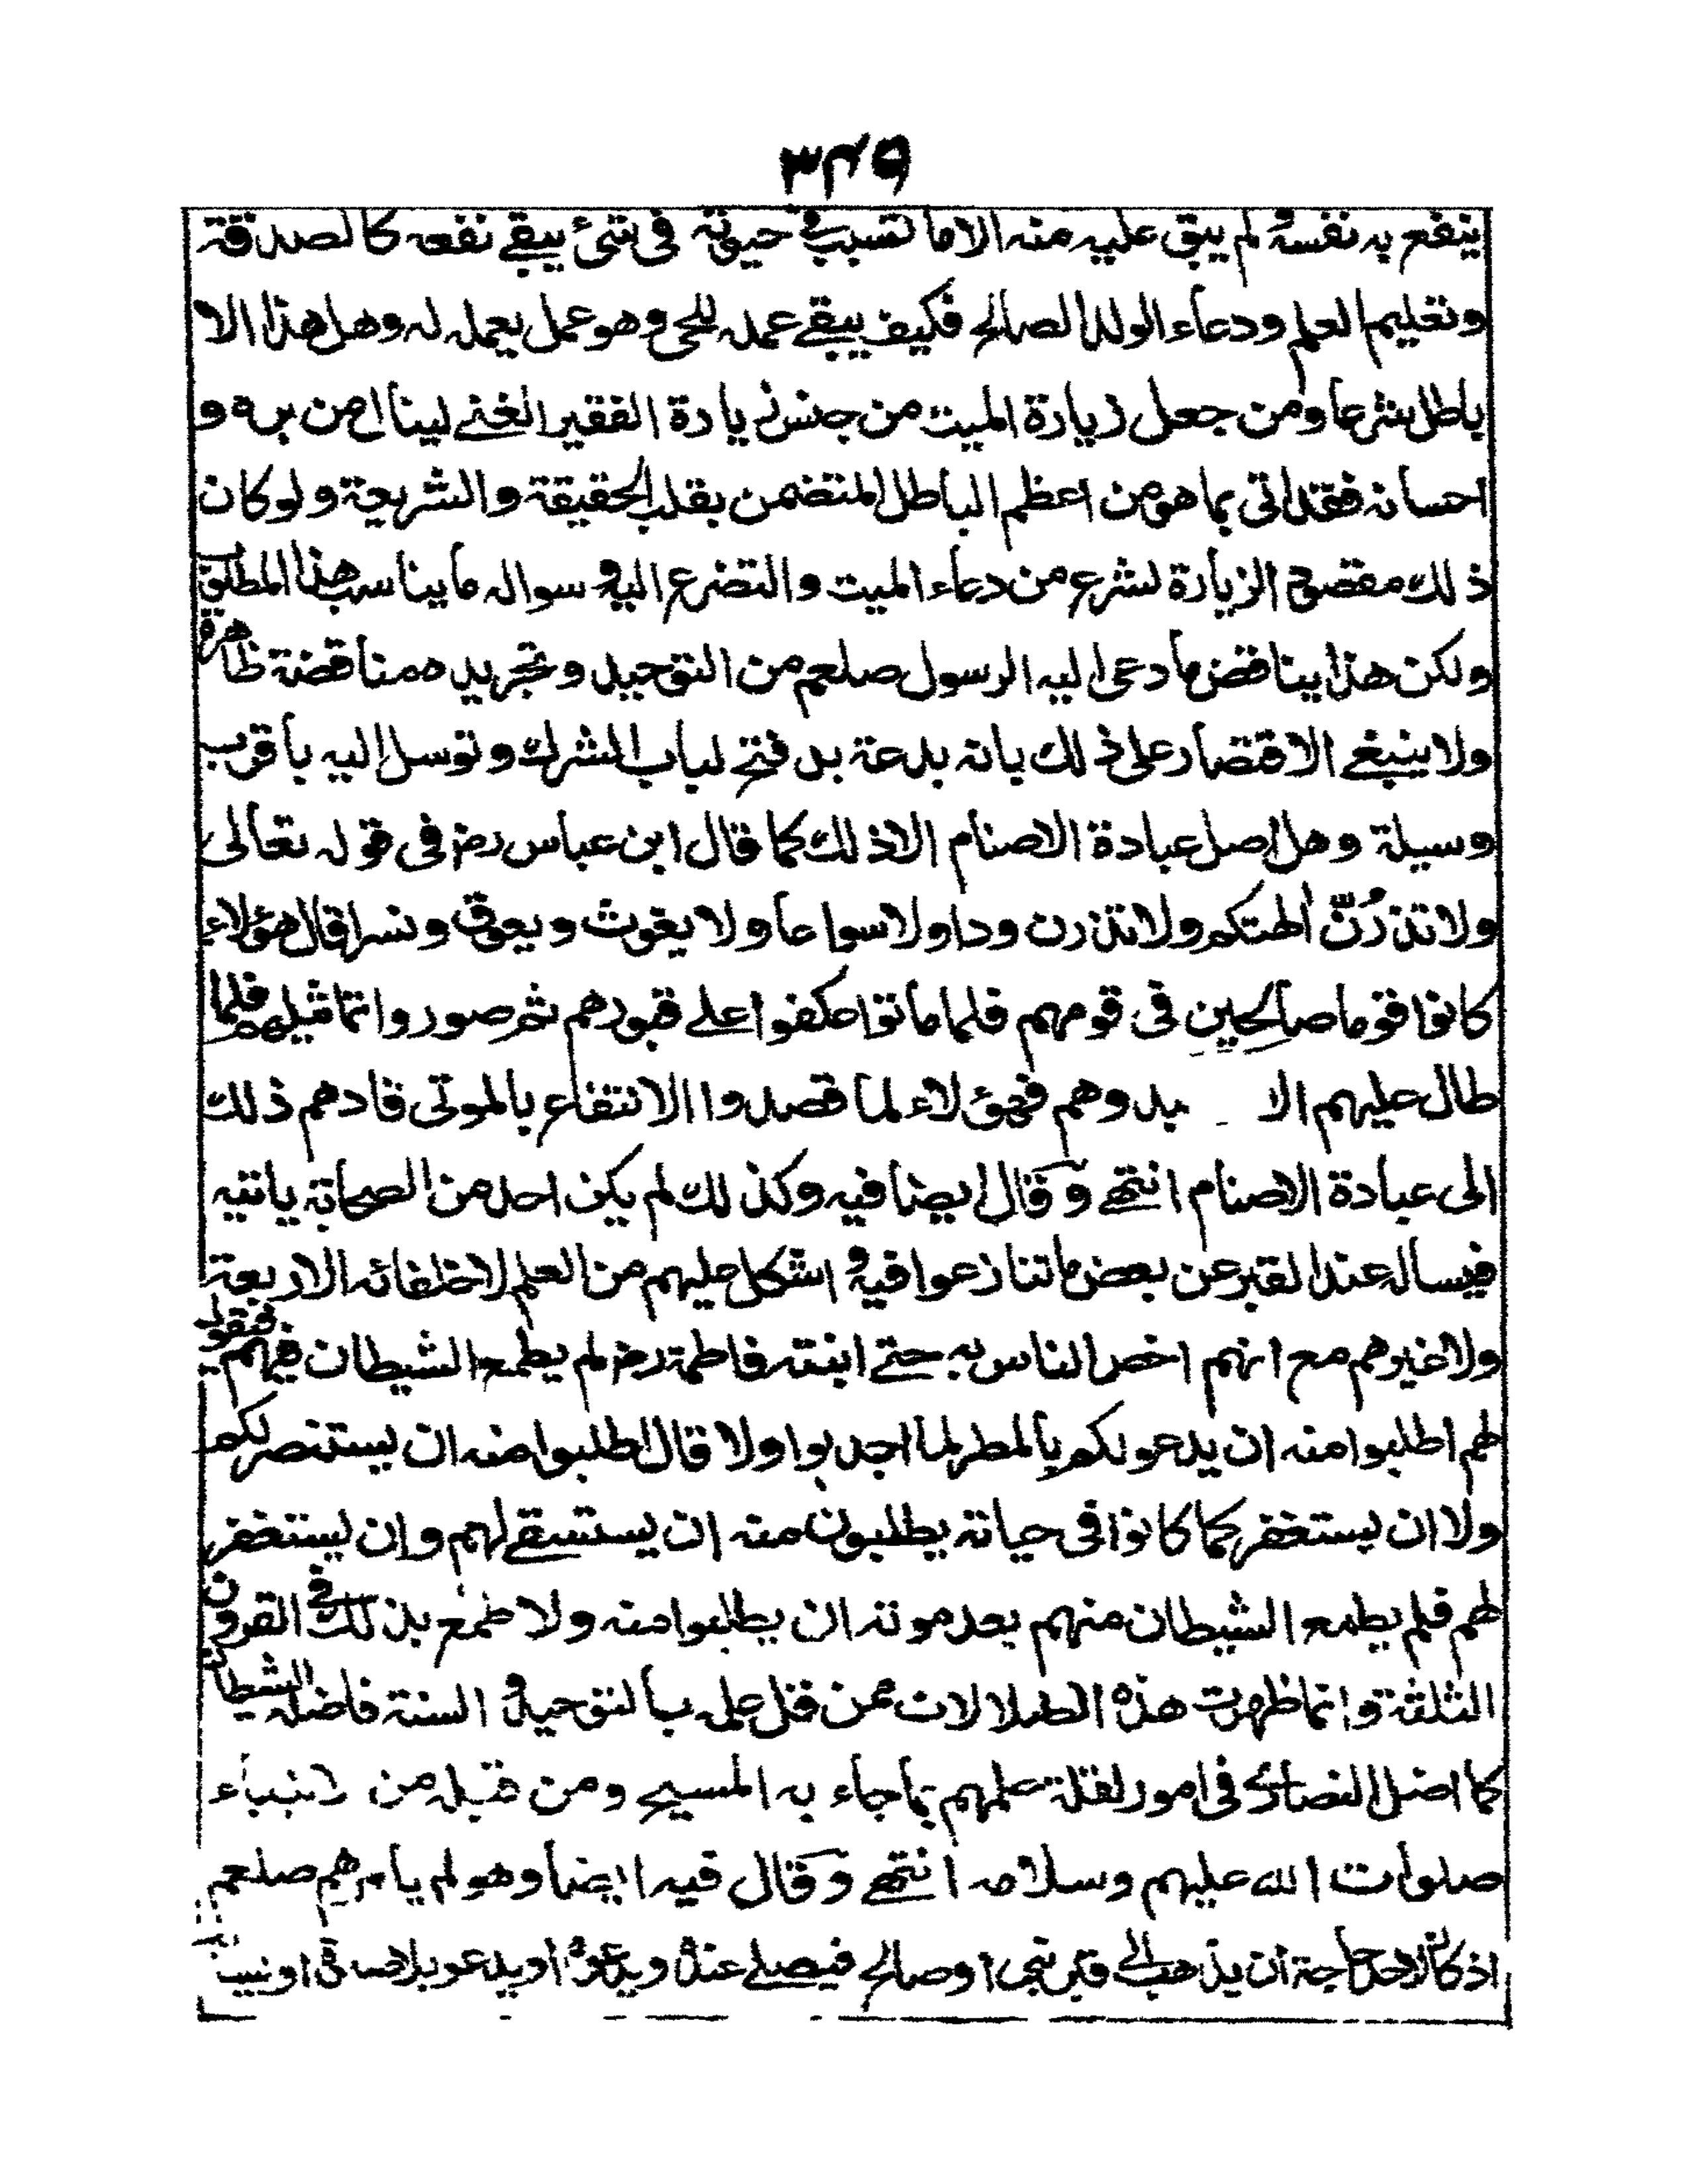 ٣٤٩
ينفع به نفسه و لم يبق عليه منه الا ما تسبب في حيوته في شئ يبقے نفعه كالصدقة
وتعليم العلم ودعاء الولد الصالح فكيف يبقے عمله للحي وهو عمل يعمله له وهل هذا الا
باطل شرعا ومن جعل زيارة الميت من جنس زيارة الفقير الغنے لينال من بره و
احسانه فقد اتى بما هو من اعظم الباطل المتضمن بقلب الحقيقة والشريعة ولو كان
ذلك مقصود الزيارة لشرع من دعاء الميت والتضرع اليه و سواله ما يناسب هذا المطلوب
ولكن هذا يناقض ما دعى اليه الرسول صلعم من التوحيد وتجريده مناقضة ظاهرة
ولا ينبغے الاقتصار على ذلك بانه بدعة بل فتح لباب الشرك وتوسل اليه باقرب
وسيلة وهل اصل عبادة الاصنام الا ذلك كما قال ابن عباس رضـ في قوله تعالى
ولا تذرُنّ الهتكم ولا تذرن ودا ولا سواعا ولا يغوث ويعوق ونسرا قال هؤلاء
كانوا قوما صالحين في قومهم فلما ماتوا عكفوا علے قبورهم ثم صوروا تماثيلهم فلما
طال عليهم الا بدوهم فهؤلاء لما قصدوا الانتفاع بالموتى قادهم ذلك
الى عبادة الاصنام انتهے وقال ايضا فيه وكذلك لم يكن احد من الصحابة ياتيه
فيساله عند القبر عن بعض ما تنازعوا فيه و اشكل عليهم من العلم لا خلفائه الاربعة
ولا غيرهم مع انهم اخص الناس به حتے ابنته فاطمة رضـ لم يطمع الشيطان فيهم فيقول
لهم اطلبوا منه ان يدعو لكم بالمطر لما اجدبوا ولا قال اطلبوا منه ان يستنصر لكم
ولا ان يستغفر كما كانوا في حياته يطلبون منه ان يستسقے لهم وان يستغفر
لهم فلم يطمع الشيطان منهم بعد موته ان يطلبوا منه ولا طمع بذلك في القرون
الثلثة وانما ظهرت هذه الضلالات ممن قل علمه بالتوحيد و السنة فاضله الشيطان
كما اضل النصارے في امور لقلة علمهم بما جاء به المسيح ومن قبله من لانبياء
صلوات الله عليهم وسلامه انتهے وقال فيه ايضا وهو لم يامرهم صلعم
اذ كان لاحد حاجة ان يذهب الے قبر نبي او صالح فيصلے عنده ويدعوه او يدعو بلا